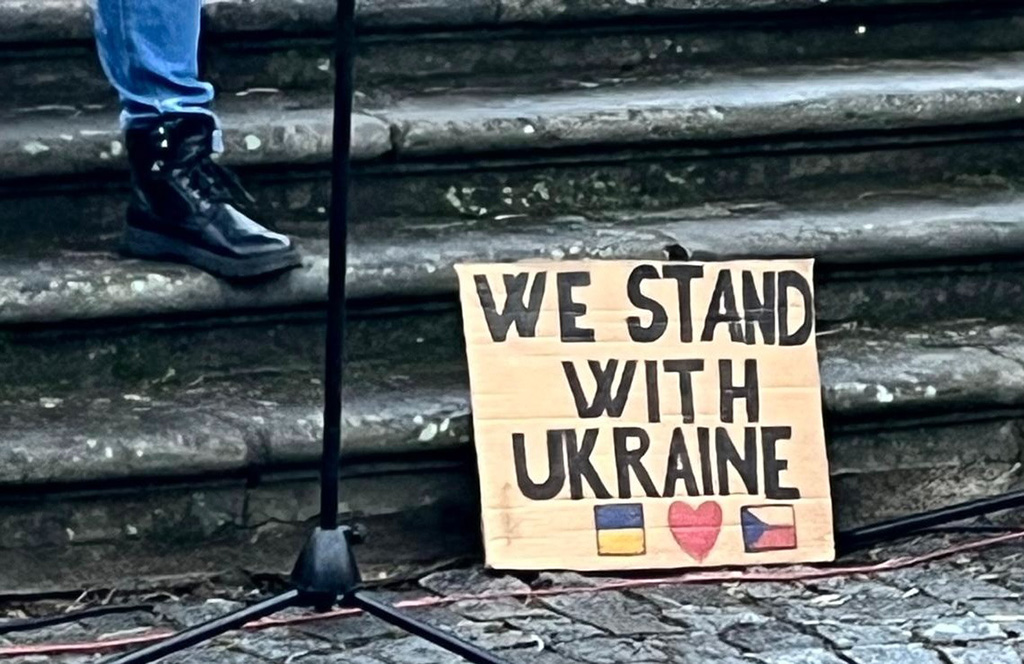 WE STAND
WITH
UKRAINE